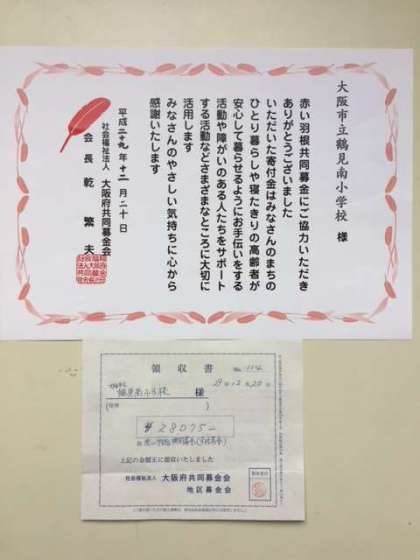 大阪市立鶴見南小学校 様
赤い羽根共同募金にご協力いただき
ありがとうございました
いただいた寄付金はみなさんのまちの
ひとり暮らしや寝たきりの高齢者が
安心して暮らせるようにお手伝いをする
活動や障がいのある人たちをサポート
する活動などさまざまなところに大切に
活用します
みなさんのやさしい気持ちに心から
感謝いたします
平成二十九年十二月二十日
社会福祉法人 大阪府共同募金会
会長 乾 繁夫
領収書
No. 114
29年12月20日
鶴見南小学校 様
¥28075-
上記の金額正に領収いたしました
社会福祉法人 大阪府共同募金会
地区募金会